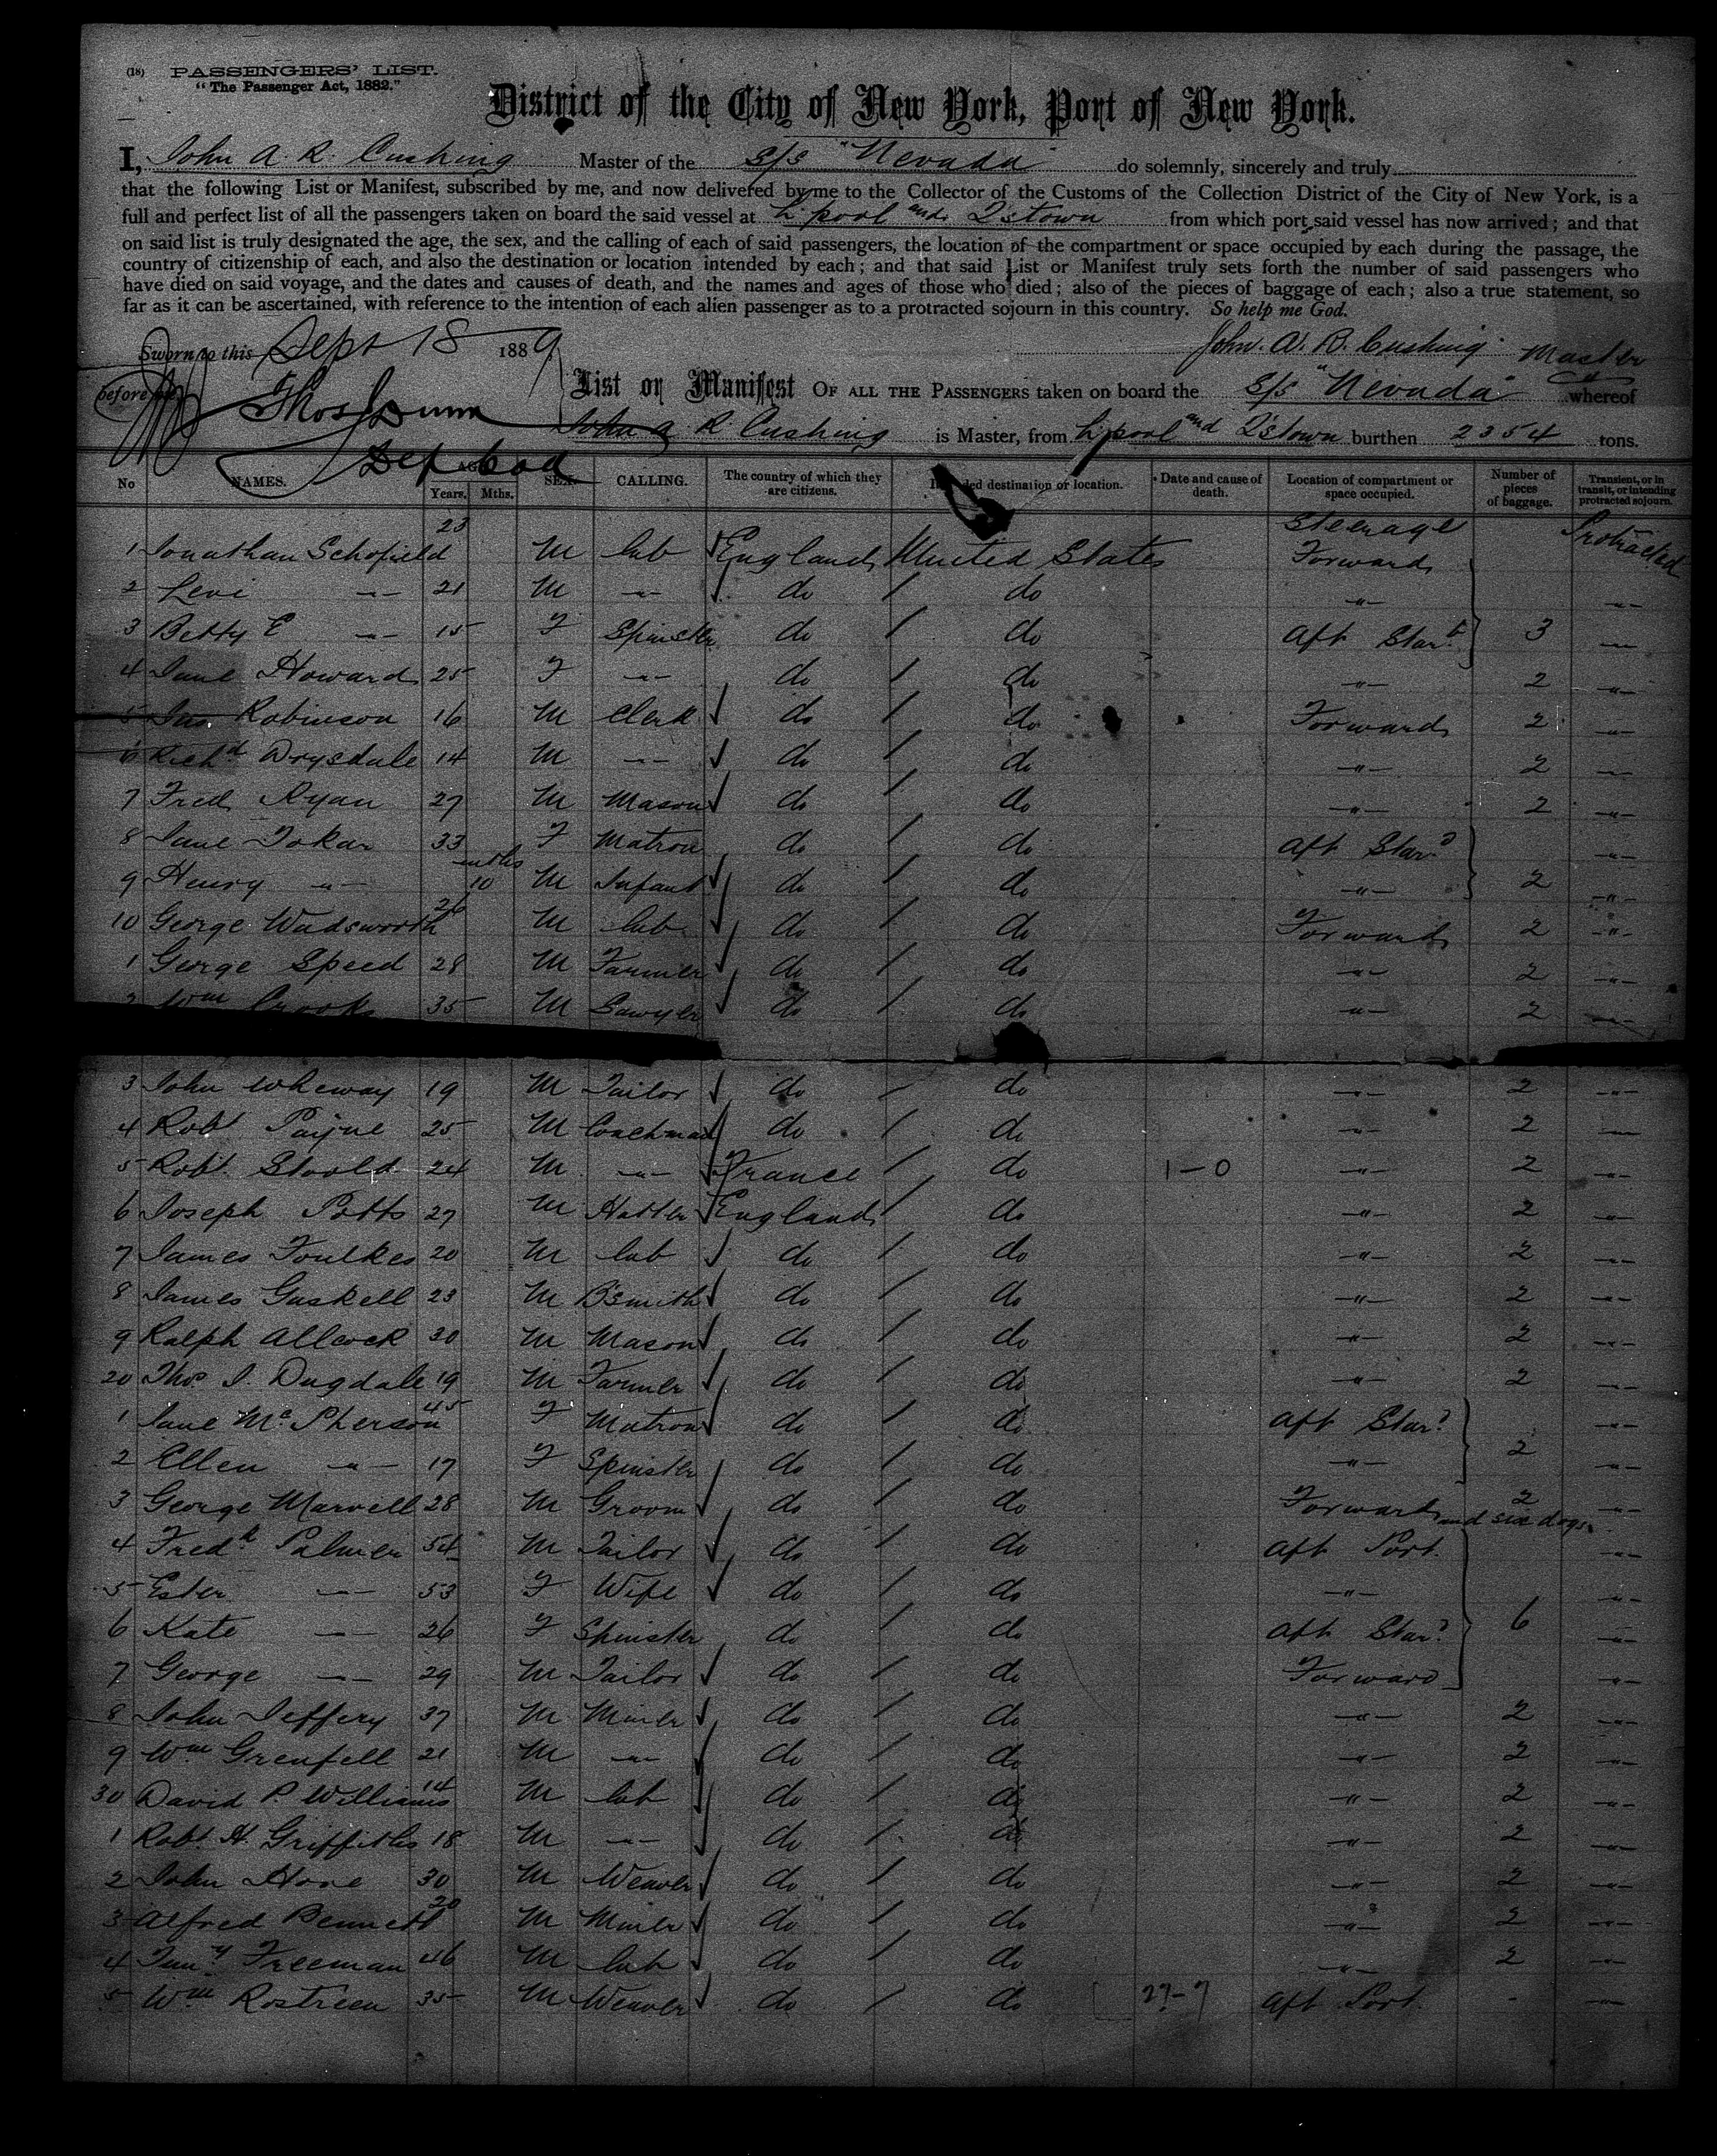 (18) PASSENGERS' LIST.
"The Passenger Act, 1882."
District of the City of New York, Port of New York.
I, John A. R. Cushing Master of the S/S "Nevada" do solemnly, sincerely and truly
that the following List or Manifest, subscribed by me, and now delivered by me to the Collector of the Customs of the Collection District of the City of New York, is a
full and perfect list of all the passengers taken on board the said vessel at L'pool and Q'stown from which port said vessel has now arrived; and that
on said list is truly designated the age, the sex, and the calling of each of said passengers, the location of the compartment or space occupied by each during the passage, the
country of citizenship of each, and also the destination or location intended by each; and that said List or Manifest truly sets forth the number of said passengers who
have died on said voyage, and the dates and causes of death, and the names and ages of those who died; also of the pieces of baggage of each; also a true statement, so
far as it can be ascertained, with reference to the intention of each alien passenger as to a protracted sojourn in this country. So help me God.
Sworn to this Sept 18 1889 John. A. R. Cushing Master
before me
List or Manifest OF ALL THE PASSENGERS taken on board the S/S "Nevada" whereof
Thos Dunn
John A R Cushing is Master, from L'pool and Q'stown burthen 2354 tons.
Dep
No NAMES. AGE Years. Mths. SEX. CALLING. The country of which they are citizens. Intended destination or location. Date and cause of death. Location of compartment or space occupied. Number of pieces of baggage. Transient, or in transit, or intending protracted sojourn.
1 Jonathan Schofield 23 M Lab England United States Steerage Forward Protracted
2 Levi -"- 21 M -"- do do -"- -"-
3 Betty E -"- 15 F Spinster do do Aft Starbd 3 -"-
4 Jane Howard 25 F -"- do do -"- 2 -"-
5 Jas Robinson 16 M Clerk do do Forward 2 -"-
6 Richd Drysdale 14 M -"- do do -"- 2 -"-
7 Fred Ryan 27 M Mason do do -"- 2 -"-
8 Jane Tokar 33 F Matron do do Aft Stard -"-
9 Henry -"- mths 10 M Infant do do -"- 2 -"-
10 George Wadsworth 26 M Lab do do Forward 2 -"-
1 George Speed 28 M Farmer do do -"- 2 -"-
2 Wm Crooks 35 M Sawyer do do -"- 2 -"-
3 John Wheway 19 M Tailor do do -"- 2 -"-
4 Robt Payne 25 M Coachman do do -"- 2 -"-
5 Robt. Stoold 24 M -"- France do 1-0 -"- 2 -"-
6 Joseph Potts 27 M Hatter England do -"- 2 -"-
7 James Foulkes 20 M Lab do do -"- 2 -"-
8 James Gaskell 23 M B'smith do do -"- 2 -"-
9 Ralph Allcock 30 M Mason do do -"- 2 -"-
20 Thos J. Dugdale 19 M Farmer do do -"- 2 -"-
1 Jane McPherson 45 F Matron do do Aft Stard -"-
2 Ellen -"- 17 F Spinster do do -"- 2 -"-
3 George Marvell 28 M Groom do do Forward 2 and six dogs -"-
4 Fredk Palmer 54 M Tailor do do Aft Port. -"-
5 Ester -"- 53 F Wife do do -"- -"-
6 Kate -"- 26 F Spinster do do Aft Stard 6 -"-
7 George -"- 29 M Tailor do do Forward -"-
8 John Jeffery 37 M Miner do do -"- 2 -"-
9 Wm Grenfell 21 M -"- do do -"- 2 -"-
30 David P. Williams 14 M Lab do do -"- 2 -"-
1 Robt H. Griffiths 18 M -"- do do -"- 2 -"-
2 John Hove 30 M Weaver do do -"- 2 -"-
3 Alfred Bennett 20 M Miner do do -"- 2 -"-
4 Freeman 46 M Lab do do -"- 2 -"-
5 Wm Rostreen 35 M Weaver do do 27-7 Aft Port. -"-